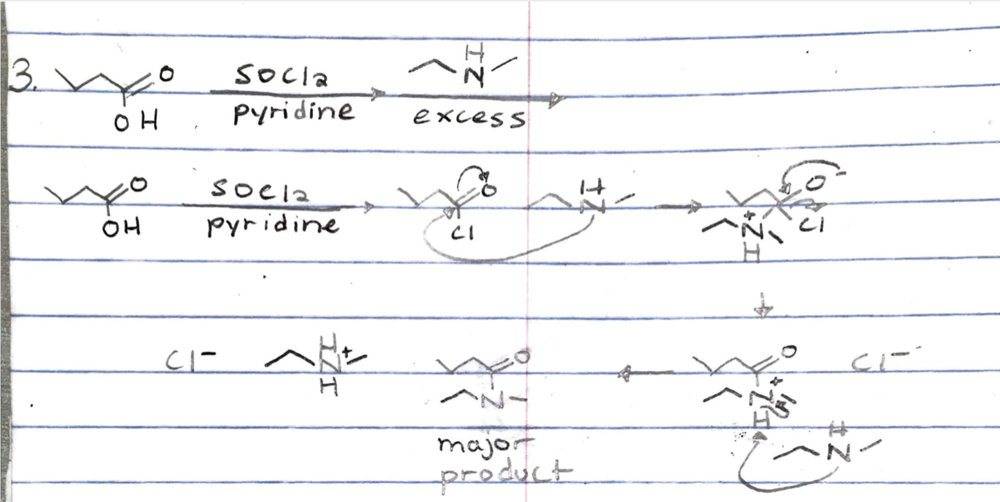 3. O OH SOCl2 pyridine H N excess
O OH SOCl2 pyridine O Cl H N O- N+ H Cl
Cl- H N+ H O N O N+ H Cl-
H N
major
product